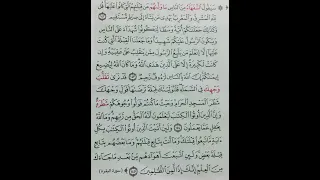 سَيَقُولُ ٱلسُّفَهَآءُ مِنَ ٱلنَّاسِ مَا وَلَّىٰهُمْ عَن قِبْلَتِهِمُ ٱلَّتِى كَانُوا۟ عَلَيْهَا ۚ قُل
لِّلَّهِ ٱلْمَشْرِقُ وَٱلْمَغْرِبُ ۚ يَهْدِى مَن يَشَآءُ إِلَىٰ صِرَٰطٍ مُّسْتَقِيمٍ ١٤٢
وَكَذَٰلِكَ جَعَلْنَٰكُمْ أُمَّةً وَسَطًا لِّتَكُونُوا۟ شُهَدَآءَ عَلَى ٱلنَّاسِ
وَيَكُونَ ٱلرَّسُولُ عَلَيْكُمْ شَهِيدًا ۗ وَمَا جَعَلْنَا ٱلْقِبْلَةَ ٱلَّتِى كُنتَ
عَلَيْهَآ إِلَّا لِنَعْلَمَ مَن يَتَّبِعُ ٱلرَّسُولَ مِمَّن يَنقَلِبُ عَلَىٰ عَقِبَيْهِ ۚ وَإِن
كَانَتْ لَكَبِيرَةً إِلَّا عَلَى ٱلَّذِينَ هَدَى ٱللَّهُ ۗ وَمَا كَانَ ٱللَّهُ لِيُضِيعَ
إِيمَٰنَكُمْ ۚ إِنَّ ٱللَّهَ بِٱلنَّاسِ لَرَءُوفٌ رَّحِيمٌ ١٤٣ قَدْ نَرَىٰ تَقَلُّبَ
وَجْهِكَ فِى ٱلسَّمَآءِ ۖ فَلَنُوَلِّيَنَّكَ قِبْلَةً تَرْضَىٰهَا ۚ فَوَلِّ وَجْهَكَ
شَطْرَ ٱلْمَسْجِدِ ٱلْحَرَامِ ۚ وَحَيْثُ مَا كُنتُمْ فَوَلُّوا۟ وُجُوهَكُمْ شَطْرَهُۥ ۗ
وَإِنَّ ٱلَّذِينَ أُوتُوا۟ ٱلْكِتَٰبَ لَيَعْلَمُونَ أَنَّهُ ٱلْحَقُّ مِن رَّبِّهِمْ ۗ وَمَا ٱللَّهُ
بِغَٰفِلٍ عَمَّا يَعْمَلُونَ ١٤٤ وَلَئِنْ أَتَيْتَ ٱلَّذِينَ أُوتُوا۟ ٱلْكِتَٰبَ بِكُلِّ
ءَايَةٍ مَّا تَبِعُوا۟ قِبْلَتَكَ ۚ وَمَآ أَنتَ بِتَابِعٍ قِبْلَتَهُمْ ۚ وَمَا بَعْضُهُم بِتَابِعٍ
قِبْلَةَ بَعْضٍ ۚ وَلَئِنِ ٱتَّبَعْتَ أَهْوَآءَهُم مِّنۢ بَعْدِ مَا جَآءَكَ
مِنَ ٱلْعِلْمِ ۙ إِنَّكَ إِذًا لَّمِنَ ٱلظَّٰلِمِينَ ١٤٥ (سورة البقرة)